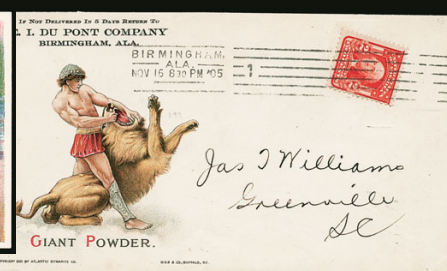 If Not Delivered In 5 Days Return To
. I. DU PONT COMPANY
BIRMINGHAM, ALA.
BIRMINGHAM,
ALA.
NOV 15 8 30 PM '05
1
Jas T Williams
Greenville
SC
GIANT POWDER.